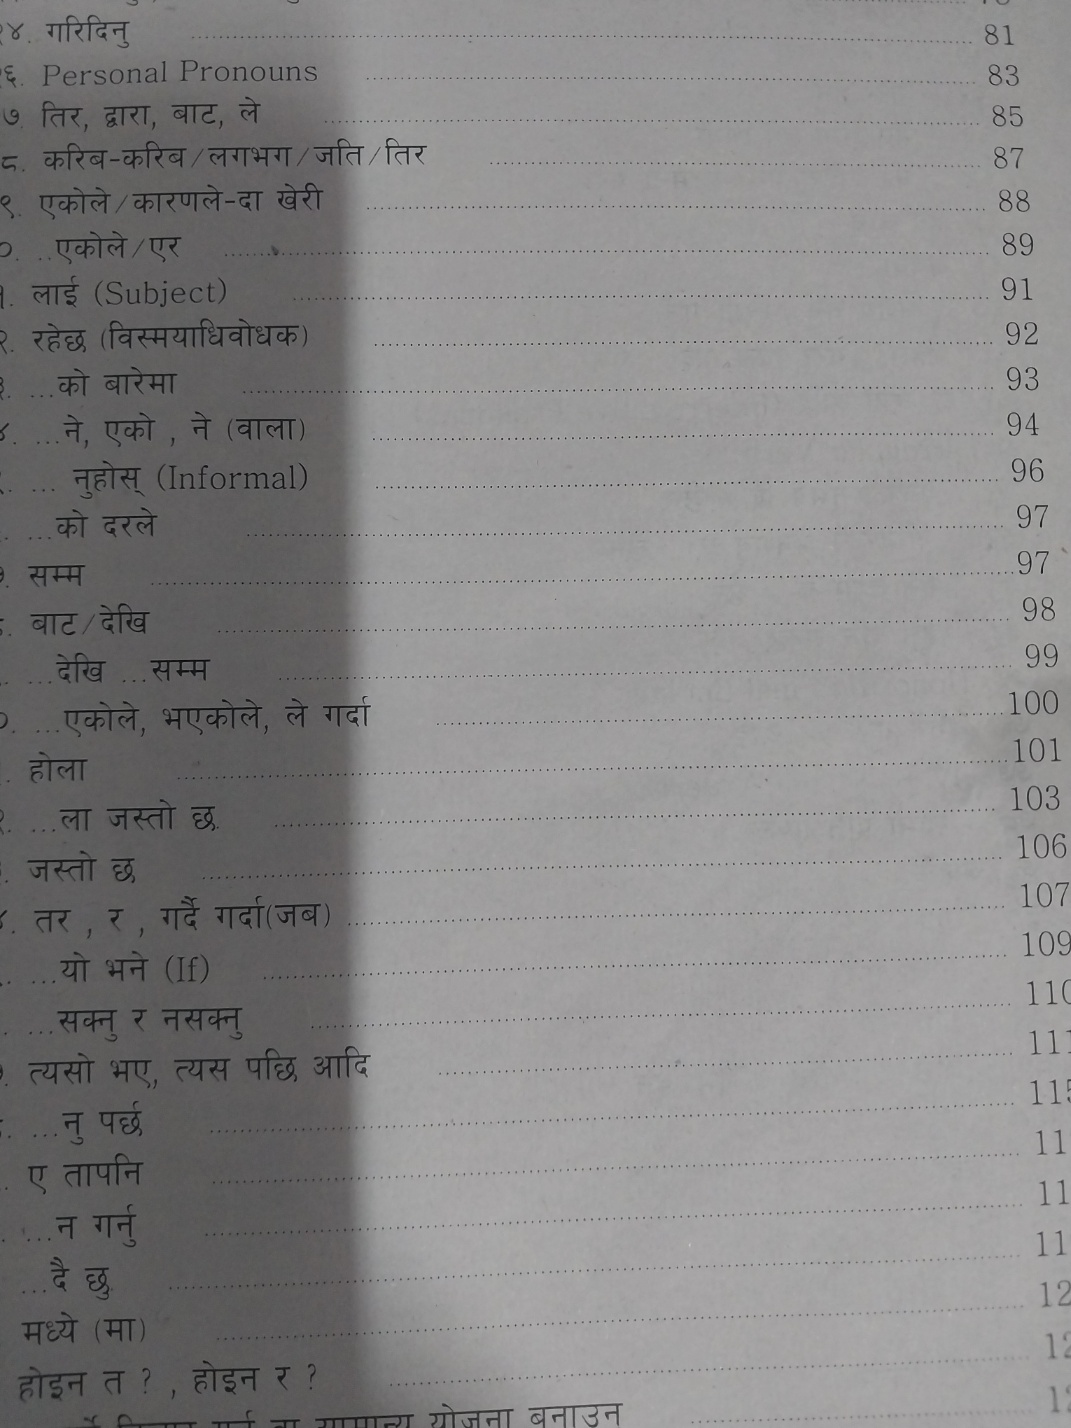 २४. गरिदिनु ........ 81
२६. Personal Pronouns ........ 83
७ तिर, द्वारा, बाट, ले ........ 85
८. करिब-करिब/लगभग/जति/तिर ........ 87
९. एकोले/कारणले-दा खेरी ........ 88
०. ..एकोले/एर ........ 89
१. लाई (Subject) ........ 91
२. रहेछ (विस्मयाधिवोधक) ........ 92
३. ...को बारेमा ........ 93
४. ...ने, एको , ने (वाला) ........ 94
... नुहोस् (Informal) ........ 96
...को दरले ........ 97
७. सम्म ........ 97
८. बाट/देखि ........ 98
...देखि ...सम्म ........ 99
०. ...एकोले, भएकोले, ले गर्दा ........ 100
होला ........ 101
२. ...ला जस्तो छ ........ 103
जस्तो छ ........ 106
४. तर , र , गर्दै गर्दा(जब) ........ 107
...यो भने (If) ........ 109
...सक्नु र नसक्नु ........ 110
७. त्यसो भए, त्यस पछि आदि ........ 111
...नु पर्छ ........ 115
ए तापनि ........ 11
...न गर्नु ........ 11
...दै छु ........ 11
मध्ये (मा) ........ 12
होइन त ? , होइन र ? ........ 12
योजना बनाउन ........